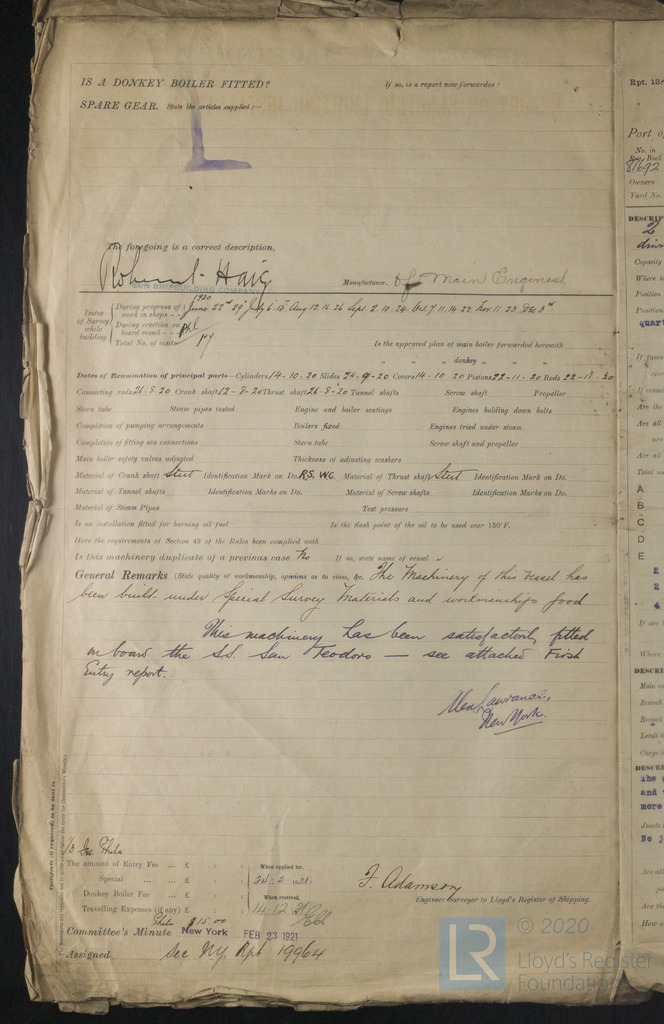 IS A DONKEY BOILER FITTED? If so, is a report now forwarded?
SPARE GEAR. State the articles supplied:—
The foregoing is a correct description,
Robert Haig Manufacturer. of Main Engines
SUN SHIPBUILDING COMPANY
Dates of Survey while building
During progress of work in shops - - 1920 June 22nd 29 July 6. 15 Aug 12 16 26 Sept. 2. 10. 24. Oct. 7. 11. 14. 22 Nov. 11 23 Dec 3rd
During erection on board vessel - - - Phl
Total No. of visits
Is the approved plan of main boiler forwarded herewith
" " " donkey " " "
Dates of Examination of principal parts—Cylinders 14-10-20 Slides 24-9-20 Covers 14-10-20 Pistons 22-11-20 Rods 22-11-20
Connecting rods 26-8-20 Crank shaft 12-8-20 Thrust shaft 26-8-20 Tunnel shafts Screw shaft Propeller
Stern tube Steam pipes tested Engine and boiler seatings Engines holding down bolts
Completion of pumping arrangements Boilers fixed Engines tried under steam
Completion of fitting sea connections Stern tube Screw shaft and propeller
Main boiler safety valves adjusted Thickness of adjusting washers
Material of Crank shaft Steel Identification Mark on Do. R.S. W.G. Material of Thrust shaft Steel Identification Mark on Do.
Material of Tunnel shafts Identification Marks on Do. Material of Screw shafts Identification Marks on Do.
Material of Steam Pipes Test pressure
Is an installation fitted for burning oil fuel Is the flash point of the oil to be used over 150°F.
Have the requirements of Section 49 of the Rules been complied with
Is this machinery duplicate of a previous case No If so, state name of vessel
General Remarks (State quality of workmanship, opinions as to class, &c. The Machinery of this Vessel has
been built under Special Survey Materials and workmanship good
This machinery has been satisfactorily fitted
on board the S.S. San Teodoro — see attached First
Entry report.
Alex Lawrance,
New York.
The amount of Entry Fee ... £ : : When applied for,
Special ... ... £ : : 24-2-1921
Donkey Boiler Fee ... £ : : When received,
Travelling Expenses (if any) £ : : 14.12
Phila $15.00
F. Adamson
Engineer Surveyor to Lloyd's Register of Shipping.
Committee's Minute New York FEB 23 1921
Assigned See NY Rpt 19964
Rpt. 13
Port o
No. in
Reg. Book
81692
Owners
Yard No.
DESCRIP
2
Capacity
Where is
Position
Position
quart
A
B
C
D
E
2
2
4
Where
DESCRI
Main c
Branch
Leads t
Cargo
DESCR
The
and
more
Joints
No j
How
LR
© 2020
Lloyd's Register
Foundation